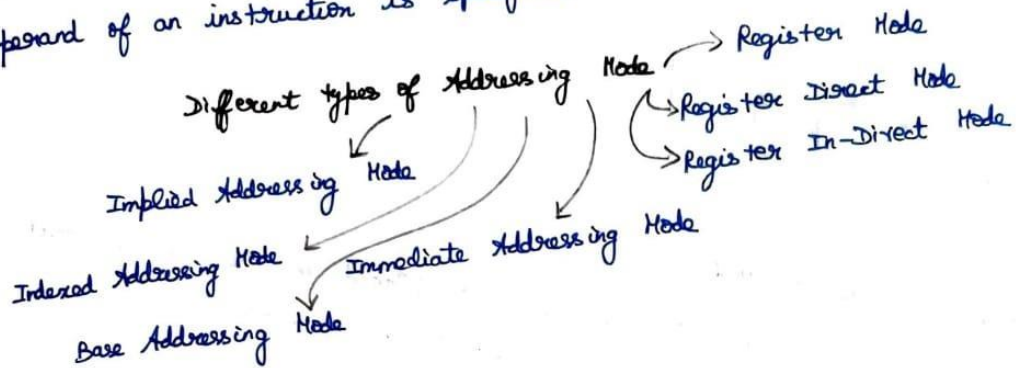 of an instruction is
Different types of Addressing Mode
Register Mode
Register Direct Mode
Register In-Direct Mode
Implied Addressing Mode
Indexed Addressing Mode
Immediate Addressing Mode
Base Addressing Mode